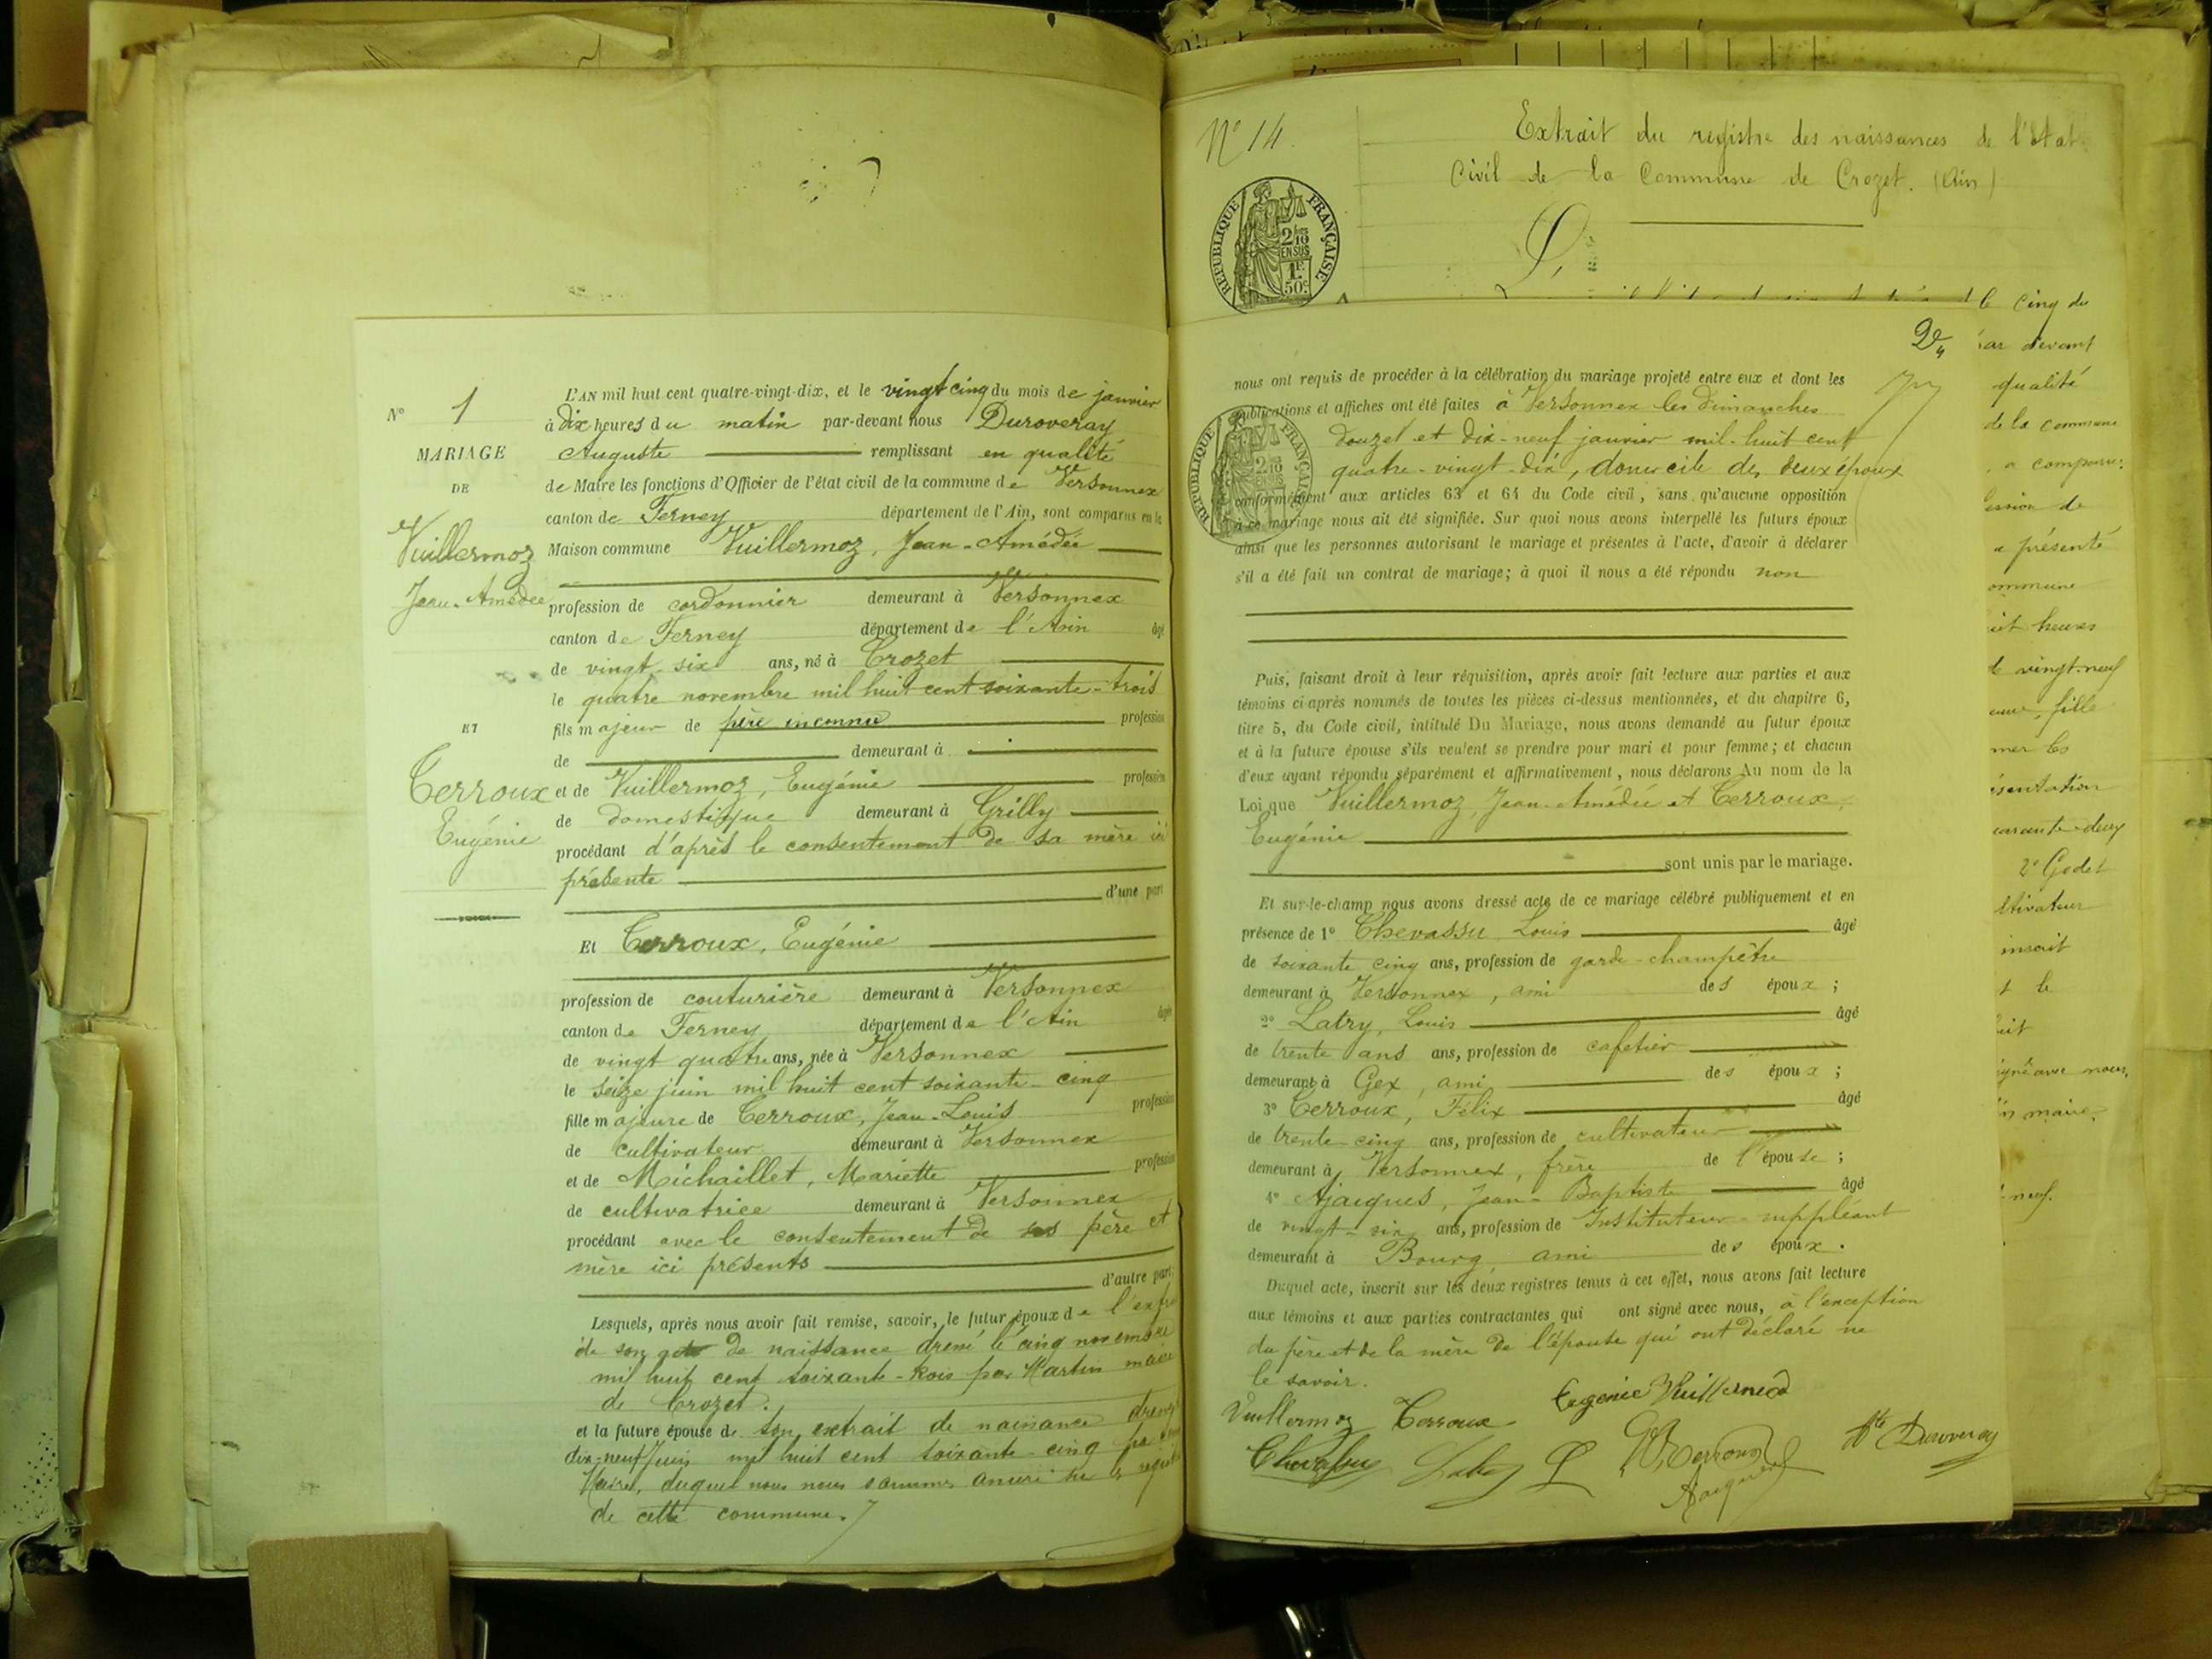 N° 1
MARIAGE
DE
Vuillermoz
Jean-Amédée
ET
Cerroux
Eugénie
L'AN mil huit cent quatre-vingt-dix, et le vingt cinq du mois de janvier
à dix heures du matin par-devant nous Duroveray
Auguste remplissant en qualité
de Maire les fonctions d'Officier de l'état civil de la commune de Versonnex
canton de Ferney département de l'Ain, sont comparus en la
Maison commune Vuillermoz, Jean-Amédée
profession de cordonnier demeurant à Versonnex
canton de Ferney département de l'Ain âgé
de vingt six ans, né à Crozet
le quatre novembre mil huit cent soixante-trois
fils majeur de père inconnu profession
de demeurant à
et de Vuillermoz, Eugénie profession
de domestique demeurant à Grilly
procédant d'après le consentement de sa mère ici
présente
d'une part
Et Cerroux, Eugénie
profession de couturière demeurant à Versonnex
canton de Ferney département de l'Ain âgée
de vingt quatre ans, née à Versonnex
le seize juin mil huit cent soixante-cinq
fille majeure de Cerroux, Jean-Louis profession
de cultivateur demeurant à Versonnex
et de Michaillet, Mariette profession
de cultivatrice demeurant à Versonnex
procédant avec le consentement de ses père et
mère ici présents
d'autre part.
Lesquels, après nous avoir fait remise, savoir, le futur époux de l'extrait
de son acte de naissance dressé le cinq novembre
mil huit cent soixante-trois par Martin maire
de Crozet.
et la future épouse de son extrait de naissance dressé
dix-neuf juin mil huit cent soixante-cinq
duquel nous nous sommes assuré sur le registre
de cette commune.
N° 14
Extrait du registre des naissances de l'état
Civil de la Commune de Crozet. (Ain)
REPUBLIQUE FRANÇAISE
2/10 EN SUS
1F 50c
nous ont requis de procéder à la célébration du mariage projeté entre eux et dont les
publications et affiches ont été faites à Versonnex les dimanches
douze et dix-neuf janvier mil-huit cent
quatre-vingt-dix, domicile des deux époux
conformément aux articles 63 et 64 du Code civil, sans qu'aucune opposition
à ce mariage nous ait été signifiée. Sur quoi nous avons interpellé les futurs époux
ainsi que les personnes autorisant le mariage et présentes à l'acte, d'avoir à déclarer
s'il a été fait un contrat de mariage; à quoi il nous a été répondu non
REPUBLIQUE FRANÇAISE
2/10 EN SUS
Puis, faisant droit à leur réquisition, après avoir fait lecture aux parties et aux
témoins ci-après nommés de toutes les pièces ci-dessus mentionnées, et du chapitre 6,
titre 5, du Code civil, intitulé Du Mariage, nous avons demandé au futur époux
et à la future épouse s'ils veulent se prendre pour mari et pour femme; et chacun
d'eux ayant répondu séparément et affirmativement, nous déclarons Au nom de la
Loi que Vuillermoz, Jean-Amédée et Cerroux,
Eugénie
sont unis par le mariage.
Et sur-le-champ nous avons dressé acte de ce mariage célébré publiquement et en
présence de 1° Chevassu Louis âgé
de soixante cinq ans, profession de garde-champêtre
demeurant à Versonnex, ami des époux ;
2° Latry, Louis âgé
de trente ans ans, profession de cafetier
demeurant à Gex, ami des époux ;
3° Cerroux, Félix âgé
de trente-cinq ans, profession de cultivateur
demeurant à Versonnex, frère de l'épouse ;
4° Ajacques, Jean-Baptiste âgé
de vingt-six ans, profession de Instituteur-suppléant
demeurant à Bourg, ami des époux.
Duquel acte, inscrit sur les deux registres tenus à cet effet, nous avons fait lecture
aux témoins et aux parties contractantes qui ont signé avec nous, à l'exception
du père et de la mère de l'épouse qui ont déclaré ne
le savoir.
Vuillermoz Cerroux Eugénie Vuillermoz
Chevassu Cerroux Duroveray
le cinq du
devant
qualité
de la commune
a comparu
de
présenté
heures
le vingt-neuf
fille
les
2° Godet
inscrit
le
signé avec nous,
maire.